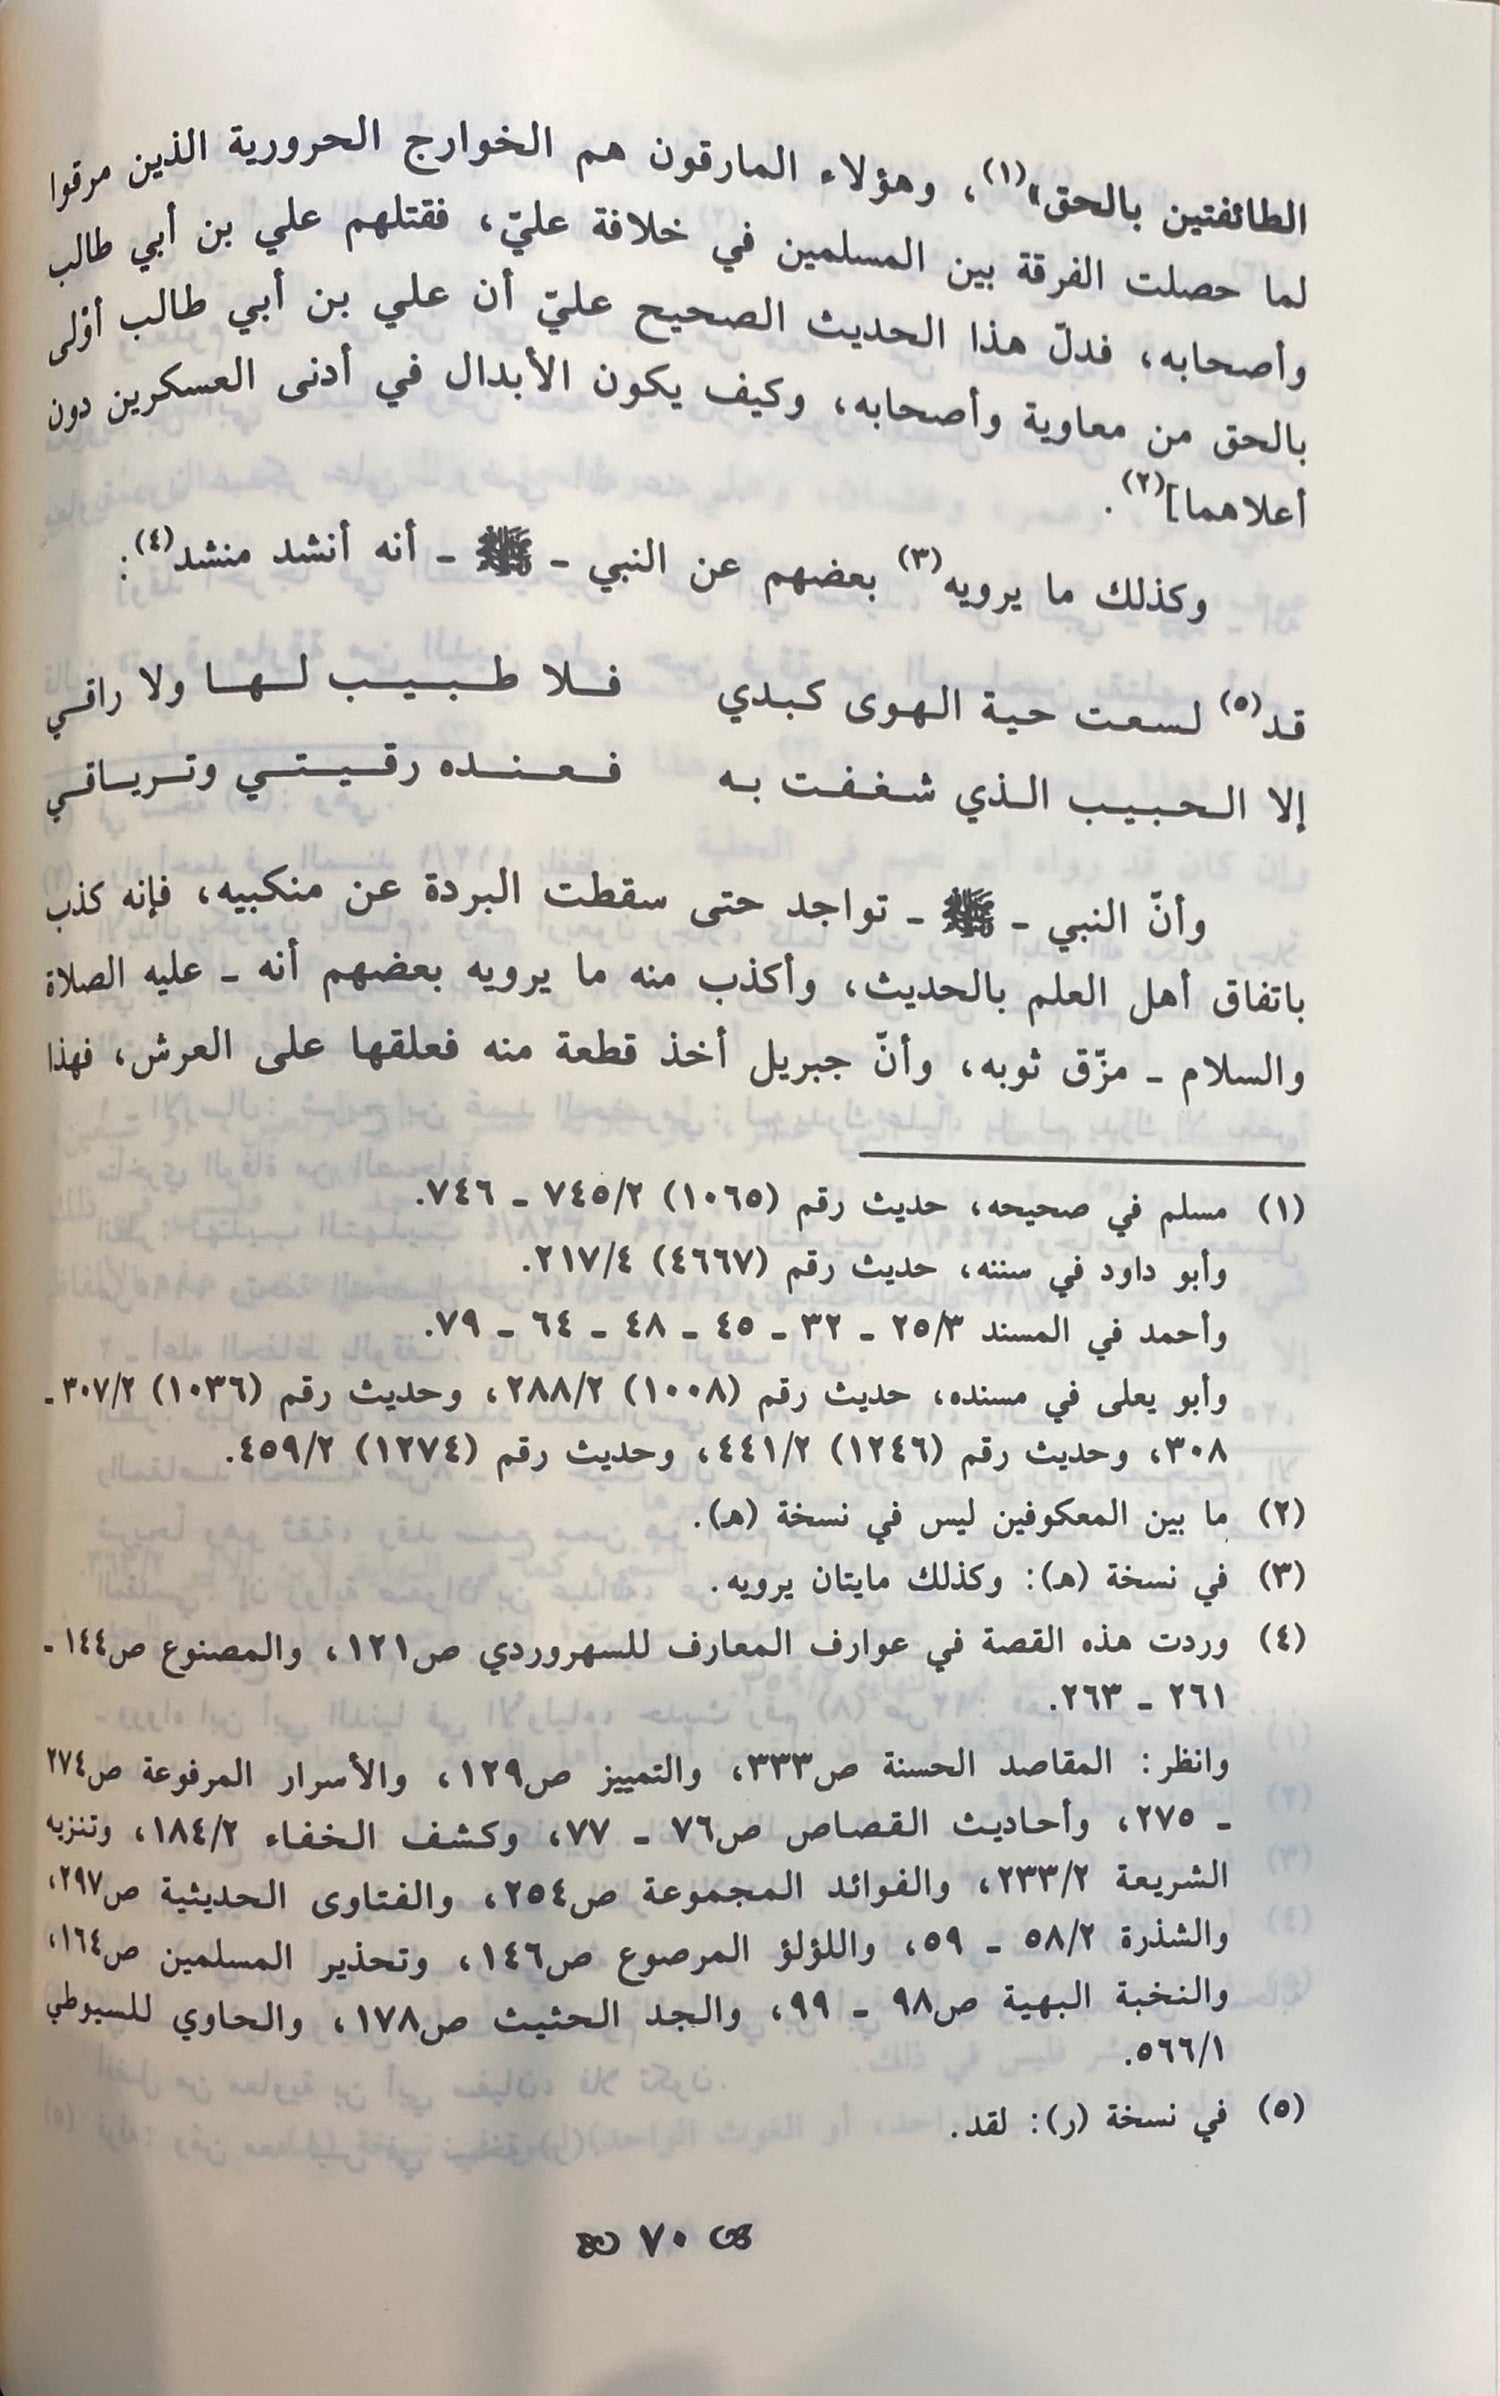 الطائفتين بالحق»(١)، وهؤلاء المارقون هم الخوارج الحرورية الذين مرقوا
لما حصلت الفرقة بين المسلمين في خلافة عليّ، فقتلهم علي بن أبي طالب
وأصحابه، فدلّ هذا الحديث الصحيح عليّ أن علي بن أبي طالب أوْلى
بالحق من معاوية وأصحابه، وكيف يكون الأبدال في أدنى العسكرين دون
أعلاهما](٢).
وكذلك ما يرويه(٣) بعضهم عن النبي - ﷺ - أنه أنشد منشد(٤):
قد(٥) لسعت حية الهوى كبدي فلا طبيب لها ولا راقي
إلا الحبيب الذي شغفت به فعنده رقيتي وترياقي
وأنّ النبي - ﷺ - تواجد حتى سقطت البردة عن منكبيه، فإنه كذب
باتفاق أهل العلم بالحديث، وأكذب منه ما يرويه بعضهم أنه - عليه الصلاة
والسلام - مزّق ثوبه، وأنّ جبريل أخذ قطعة منه فعلقها على العرش، فهذا
(١) مسلم في صحيحه، حديث رقم (١٠٦٥) ٧٤٥/٢ - ٧٤٦.
وأبو داود في سننه، حديث رقم (٤٦٦٧) ٢١٧/٤.
وأحمد في المسند ٢٥/٣ - ٣٢ - ٤٥ - ٤٨ - ٦٤ - ٧٩.
وأبو يعلى في مسنده، حديث رقم (١٠٠٨) ٢٨٨/٢، وحديث رقم (١٠٣٦) ٣٠٧/٢-
٣٠٨، وحديث رقم (١٢٤٦) ٤٤١/٢، وحديث رقم (١٢٧٤) ٤٥٩/٢.
(٢) ما بين المعكوفين ليس في نسخة (هـ).
(٣) في نسخة (هـ): وكذلك مايتان يرويه.
(٤) وردت هذه القصة في عوارف المعارف للسهروردي ص١٢١، والمصنوع ص١٤٤-
٢٦١ - ٢٦٣.
وانظر: المقاصد الحسنة ص٣٣٣، والتمييز ص١٢٩، والأسرار المرفوعة ص٢٧٤
- ٢٧٥، وأحاديث القصاص ص٧٦ - ٧٧، وكشف الخفاء ١٨٤/٢، وتنزيه
الشريعة ٢٣٣/٢، والفوائد المجموعة ص٢٥٤، والفتاوى الحديثية ص٢٩٧،
والشذرة ٥٨/٢ - ٥٩، واللؤلؤ المرصوع ص١٤٦، وتحذير المسلمين ص١٦٤،
والنخبة البهية ص٩٨ - ٩٩، والجد الحثيث ص١٧٨، والحاوي للسيوطي
٥٦٦/١.
(٥) في نسخة (ر): لقد.
٧٠